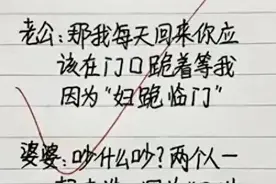 老公:那我每天回来你应
该在门口跪着等我
因为“妇跪临门”
婆婆:吵什么吵?两个人一